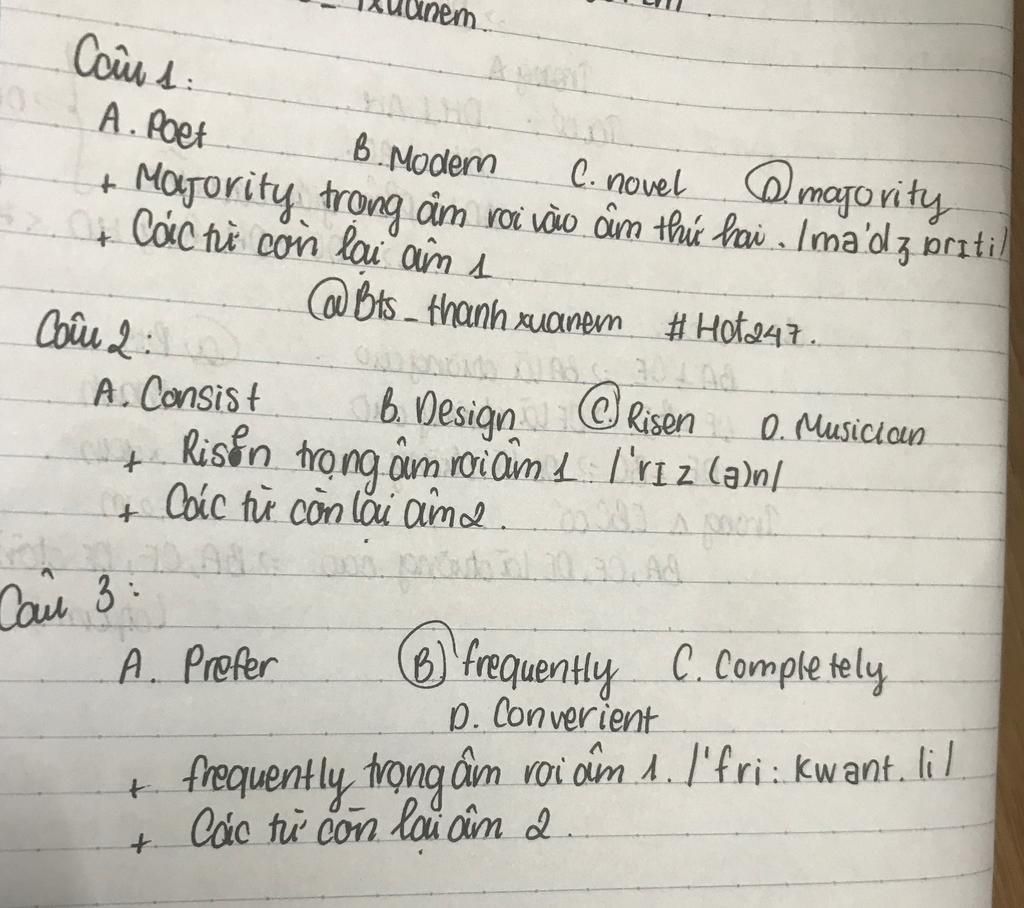 ixuanem
Câu 1:
A. Poet B. Modern C. novel D. majority
+ Majority trọng âm rơi vào âm thứ hai. /mə'dʒɒrɪti/
+ Các từ còn lại âm 1
@Bts_thanhxuanem #Hot247.
Câu 2:
A. Consist B. Design C. Risen D. Musician
+ Risen trọng âm rơi âm 1 : /'rɪz(ə)n/
+ Các từ còn lại âm 2.
Câu 3:
A. Prefer B. frequently C. Completely
D. Converient
+ frequently trọng âm rơi âm 1. /'fri:kwənt.li/
+ Các từ còn lại âm 2.